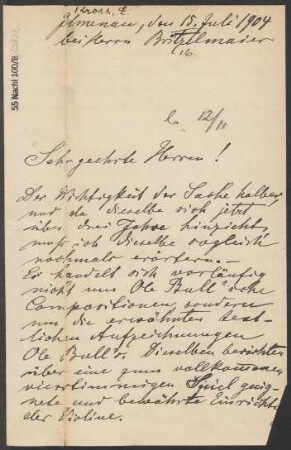 Kross. E.
Ilmenau, den 15. Juli 1904
bei Herrn Britzelmaier
16.
55 Nachl 100/B
b. 12/11
Sehr geehrte Herren!
Der Wichtigkeit der Sache halber,
und da dieselbe sich jetzt
über drei Jahre hinzieht,
muss ich dieselbe sogleich
nochmals erörtern. —
Es handelt sich vorläufig
nicht um Ole Bull'sche
Compositionen, sondern
um die erwähnten text-
lichen Aufzeichnungen
Ole Bull's. Dieselben berichten
über eine zum vollkommenen
vierstimmigen Spiel geeig-
nete und bewährte Einricht
der Violine.